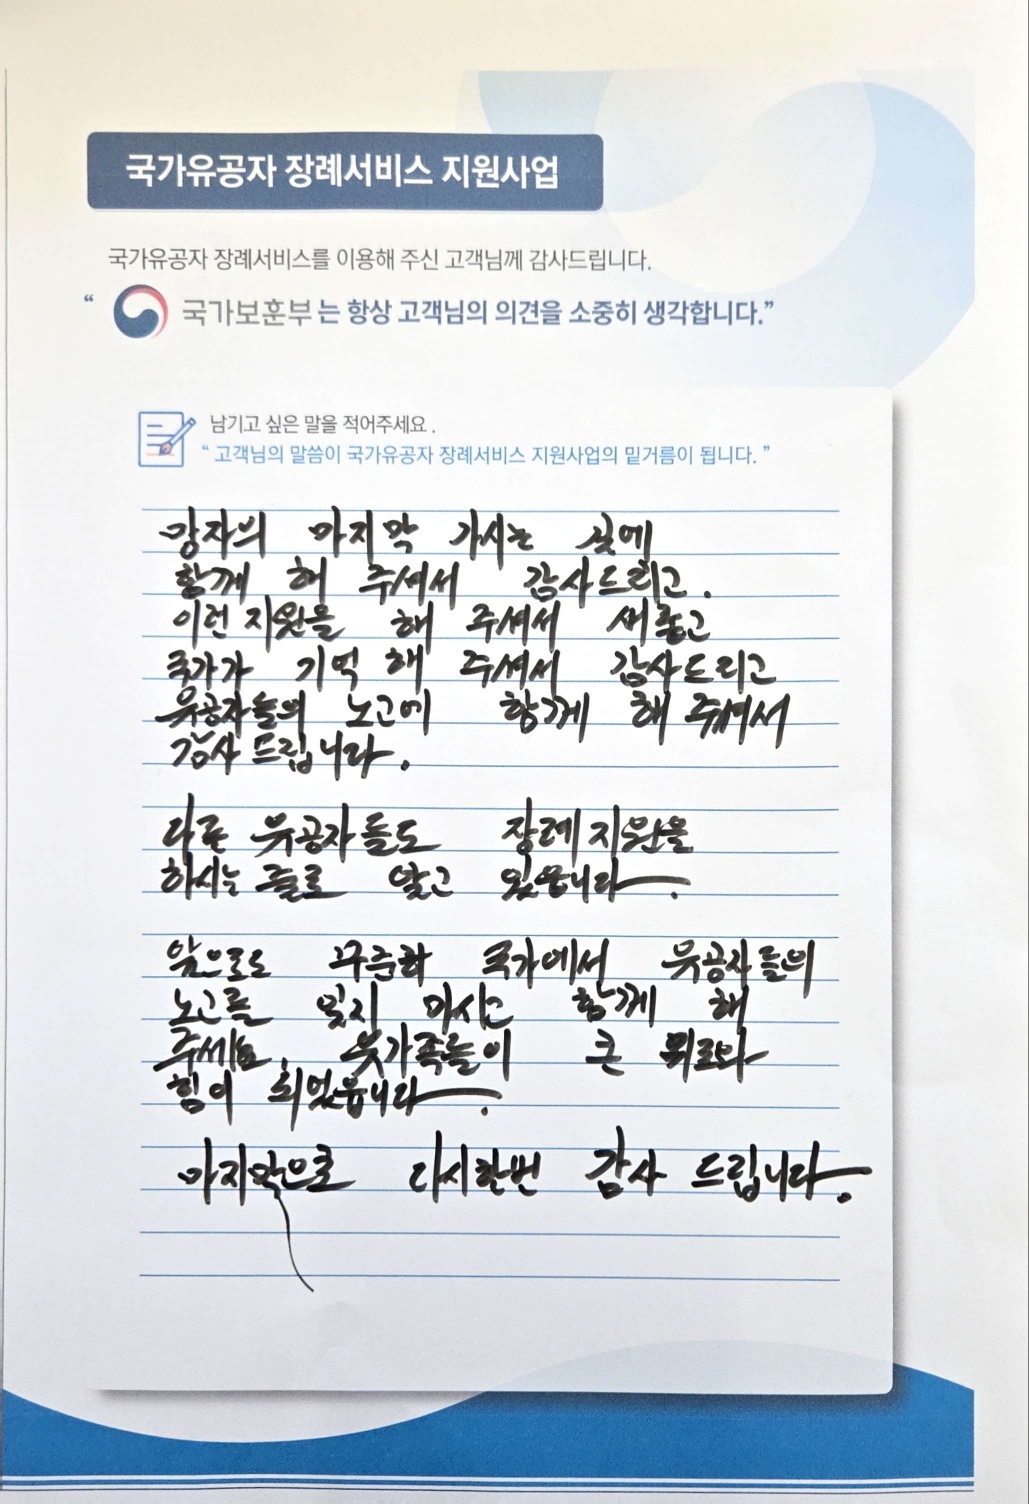 국가유공자 장례서비스 지원사업
국가유공자 장례서비스를 이용해 주신 고객님께 감사드립니다.
“ 국가보훈부 는 항상 고객님의 의견을 소중히 생각합니다.”
남기고 싶은 말을 적어주세요 .
“ 고객님의 말씀이 국가유공자 장례서비스 지원사업의 밑거름이 됩니다. ”
망자의 마지막 가시는 곳에
함께 해 주셔서 감사드리고.
이런 지원을 해 주셔서 새롭고
국가가 기억 해 주셔서 감사드리고
유공자들의 노고에 함께 해 주셔서
감사 드립니다.
다른 유공자들도 장례지원을
하시는 줄로 알고 있읍니다.
앞으로도 꾸준히 국가에서 유공자들의
노고를 잊지 마시고 함께 해
주세요. 유가족들이 큰 위로와
힘이 되었읍니다.
마지막으로 다시한번 감사 드립니다.